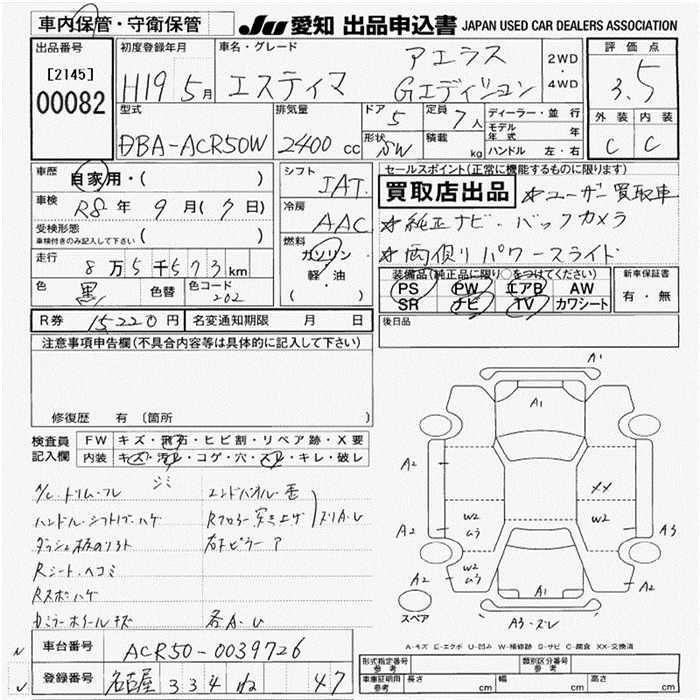 車内保管・守衛保管 JU 愛知 出品申込書 JAPAN USED CAR DEALERS ASSOCIATION
出品番号 初度登録年月 車名・グレード アエラス 2WD・4WD 評価点
[2145] 00082 H19年5月 エスティマ Gエディション 3.5
型式 排気量 ドア 5 定員 7人 ディーラー・並行 外装 内装
DBA-ACR50W 2400cc 形状 SW 積載 kg モデル年式 年 C C
ハンドル 左・右
車歴 自家用・( ) シフト JAT. セールスポイント(正常に機能するものに限ります)
車検 R8年9月(7日) 冷房 AAC 買取店出品 ☆ユーザー買取車
受検形態 ( ) ☆純正ナビ・バックカメラ
車検付きのみ記入して下さい
走行 8万5千573km 燃料 ガソリン・軽・油 ( ) ☆両側パワースライド
色 黒 色替 色コード 202 装備品(純正品に限り○をつけてください) 新車保証書
PS PW エアB AW 有・無
SR ナビ TV カワシート
R券 15220円 名変通知期限 月 日 後日品
注意事項申告欄(不具合内容等は具体的に記入して下さい)
修復歴 有 〔箇所
検査員記入欄 FW キズ・飛石・ヒビ割・リペア跡・X要
内装 キズ・汚れ・コゲ・穴・スレ・キレ・破レ
シミ
ハンドル・シフトノブ・ハゲ
Rシート・ヘコミ
A1 A1 A2 A2 A2 A2 A3 W2 W2 W2 XX A1
スペア
A3・スレ
A-キズ E-エクボ U-凹み W-補修跡 S-サビ C-腐食 XX-交換済
車台番号 ACR50-0039726
登録番号 名古屋 334 47
形式指定番号 参考 類別区分番号 参考
車庫証明用 参考 長さ cm 幅 cm 高さ cm